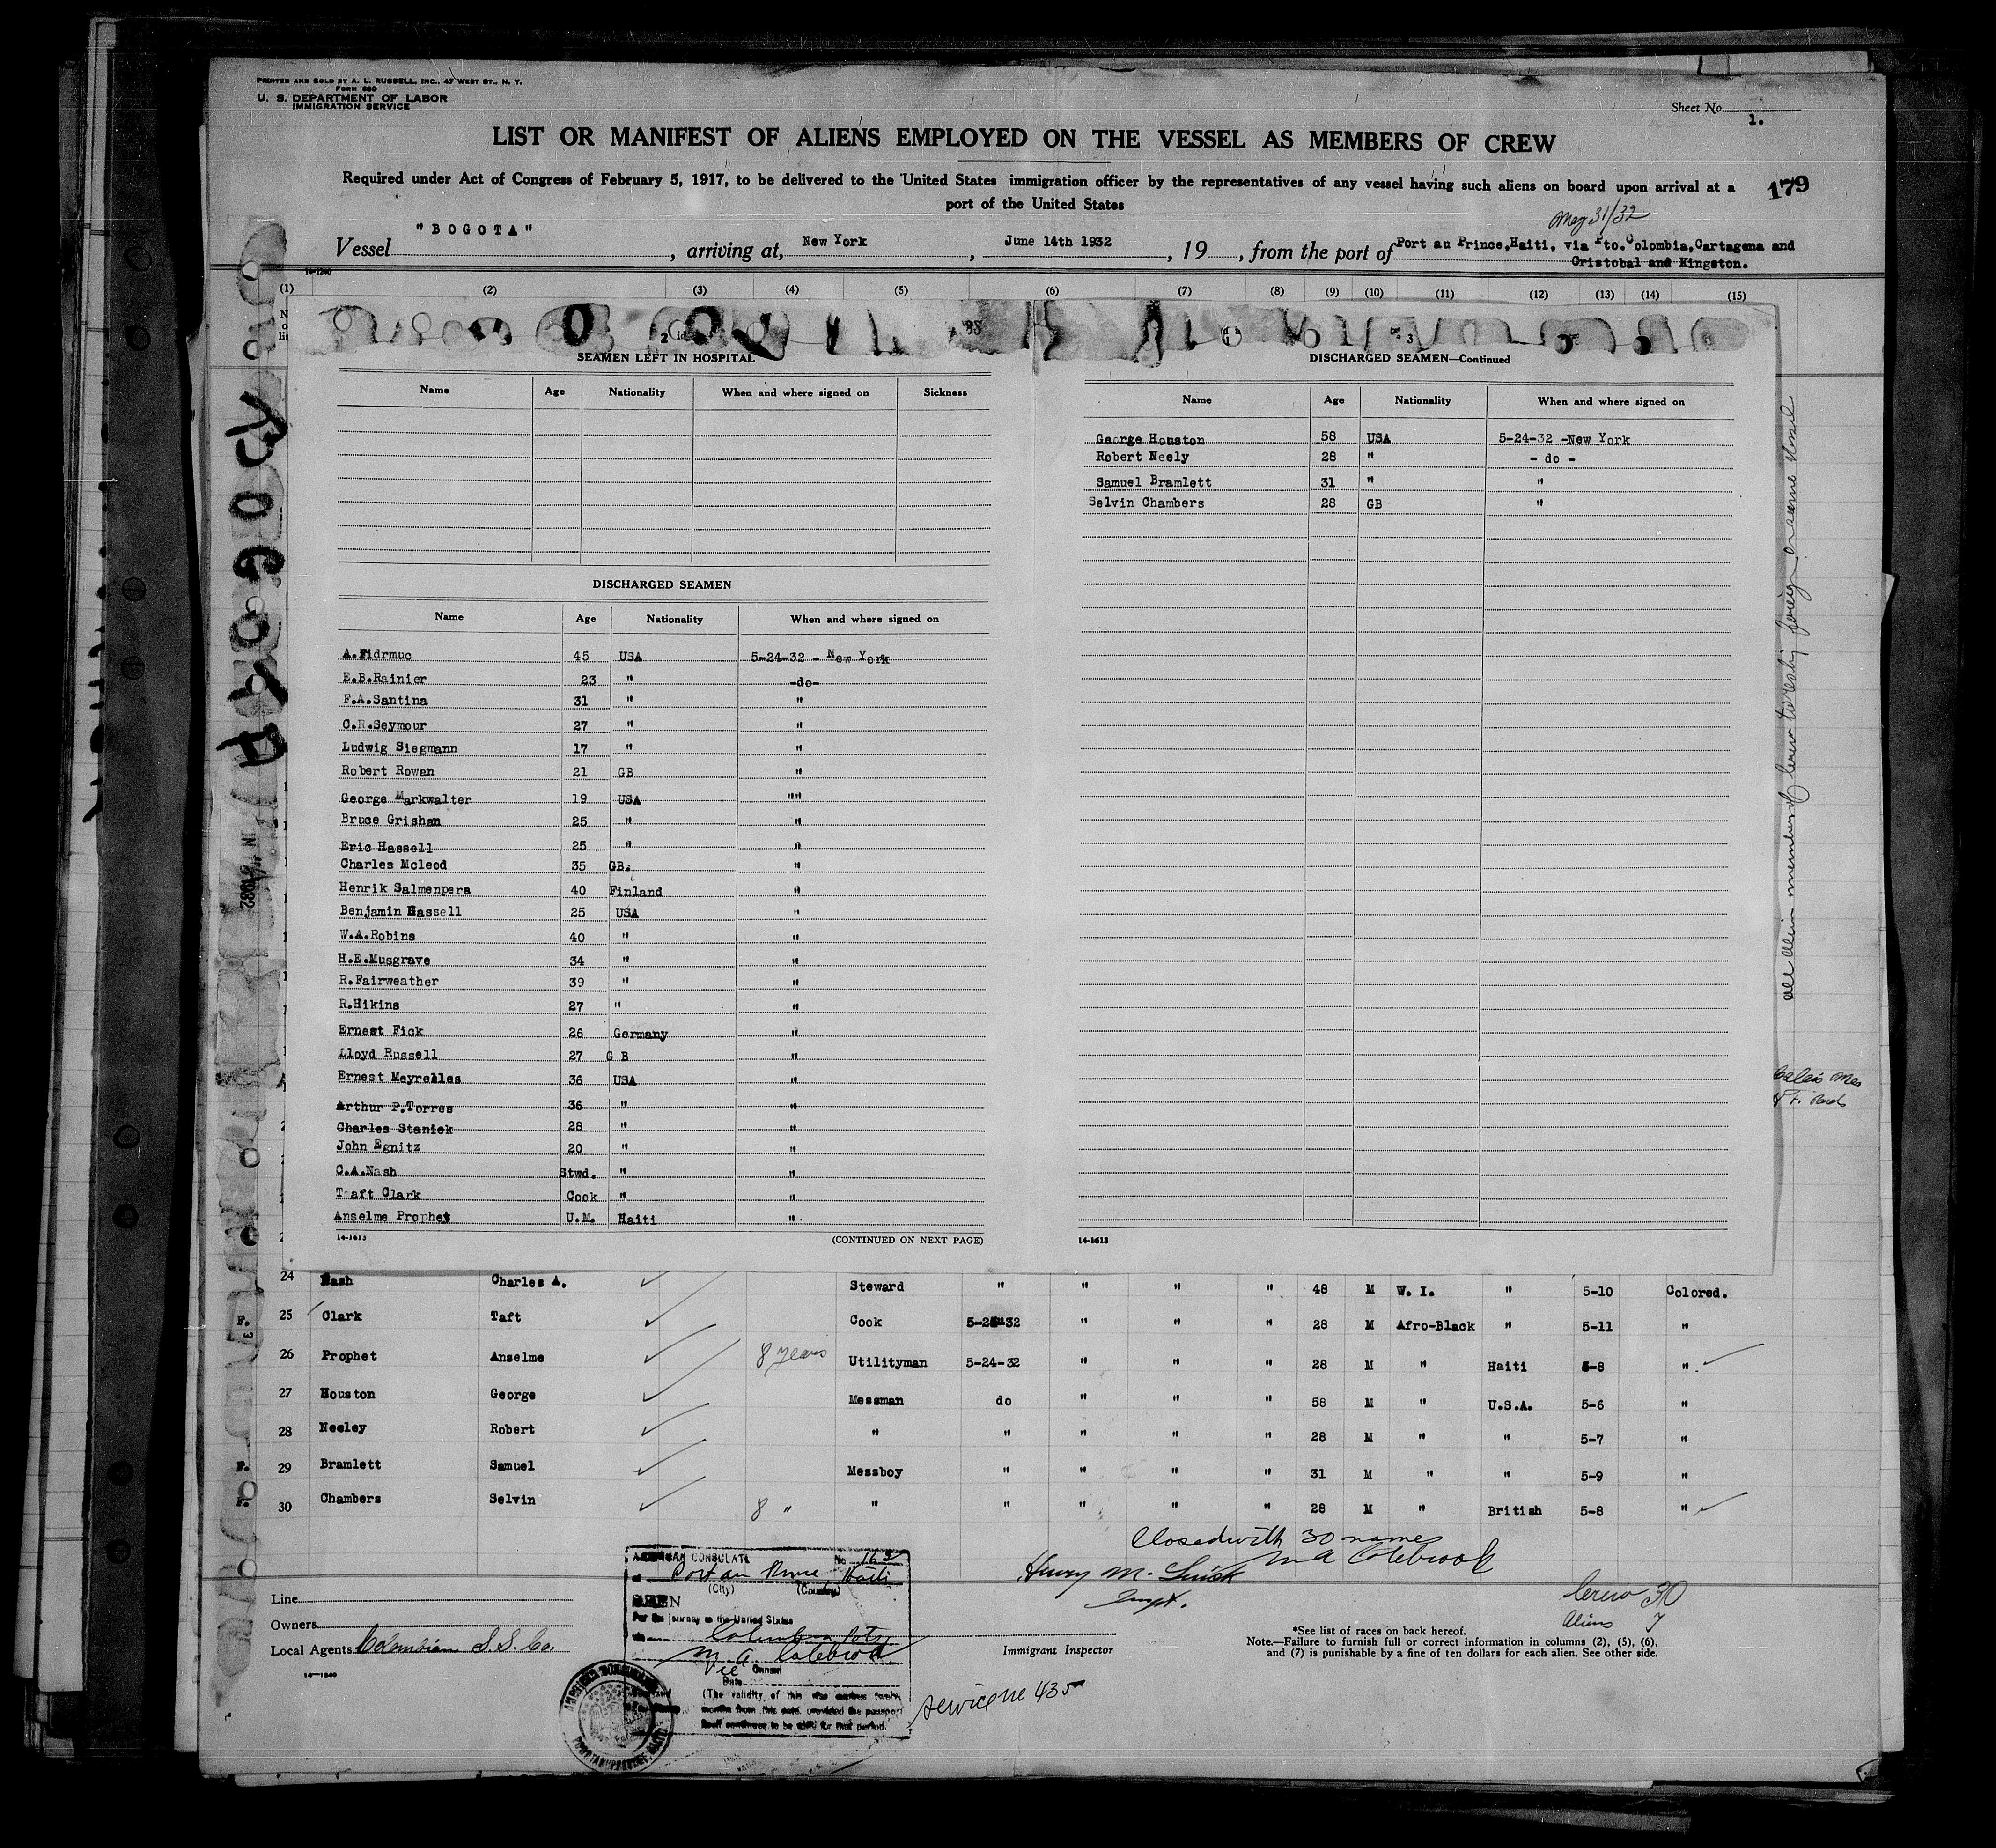 PRINTED AND SOLD BY A. L. RUSSELL, INC., 47 WEST ST., N. Y.
FORM 680
U. S. DEPARTMENT OF LABOR
IMMIGRATION SERVICE
Sheet No. 1.
LIST OR MANIFEST OF ALIENS EMPLOYED ON THE VESSEL AS MEMBERS OF CREW
Required under Act of Congress of February 5, 1917, to be delivered to the United States immigration officer by the representatives of any vessel having such aliens on board upon arrival at a
port of the United States
179
May 31/32
Vessel "BOGOTA", arriving at, New York, June 14th 1932, 19, from the port of Port au Prince, Haiti, via Pto. Colombia, Cartagena and
Cristobal and Kingston.
14-1240
(1) (2) (3) (4) (5) (6) (7) (8) (9) (10) (11) (12) (13) (14) (15)
BOGOTA
2
SEAMEN LEFT IN HOSPITAL
Name Age Nationality When and where signed on Sickness
DISCHARGED SEAMEN
Name Age Nationality When and where signed on
A.Fidrmuc 45 USA 5-24-32 - New York
E.B.Rainier 23 " -do-
F.A.Santina 31 " "
C.R.Seymour 27 " "
Ludwig Siegmann 17 " "
Robert Rowan 21 GB "
George Markwalter 19 USA ""
Bruce Grishan 25 " "
Eric Hassell 25 " "
Charles Mcleod 35 GB. "
Henrik Salmenpera 40 Finland "
Benjamin Hassell 25 USA "
W.A.Robins 40 " "
H.E.Musgrave 34 " "
R.Fairweather 39 " "
R.Hikins 27 " "
Ernest Fick 26 Germany "
Lloyd Russell 27 G B "
Ernest Meyrelles 36 USA "
Arthur P.Torres 36 " "
Charles Staniek 28 " "
John Egnitz 20 " "
C.A.Nash Stwd. " "
Taft Clark Cook " "
Anselme Prophet U.M. Haiti "
14-1613 (CONTINUED ON NEXT PAGE)
3
DISCHARGED SEAMEN—Continued
Name Age Nationality When and where signed on
George Houston 58 USA 5-24-32 -New York
Robert Neely 28 " - do -
Samuel Bramlett 31 " "
Selvin Chambers 28 GB "
14-1613
all alien members of crew to reship foreign on same vessel
24 Nash Charles A. Steward " " " " 48 M W. I. " 5-10 Colored.
F. 25 Clark Taft Cook 5-24-32 " " " 28 M Afro-Black " 5-11 "
26 Prophet Anselme 8 years Utilityman 5-24-32 " " " 28 M " Haiti 5-8 "
27 Houston George Messman do " " " 58 M " U.S.A. 5-6 "
28 Neeley Robert " " " " " 28 M " " 5-7 "
F. 29 Bramlett Samuel Messboy " " " " 31 M " " 5-9 "
F. 30 Chambers Selvin 8 " " " " " " 28 M " British 5-8 "
Closed with 30 names
M A Colebrook
AMERICAN CONSULATE No 165
at Port au Prince Haiti
(City) (Country)
SEEN
For the journey to the United States
via Colombian Pts
M. A. Colebrook
Vice Consul
Date
(The validity of this visa expires twelve
months from this date provided the passport
itself continues to be valid for that period.
Service No 435
Henry M.
Inspt.
Immigrant Inspector
Line
Owners
Local Agents Colombian S.S. Co.
14—1240
Crew 30
Aliens 7
*See list of races on back hereof.
Note.—Failure to furnish full or correct information in columns (2), (5), (6),
and (7) is punishable by a fine of ten dollars for each alien. See other side.